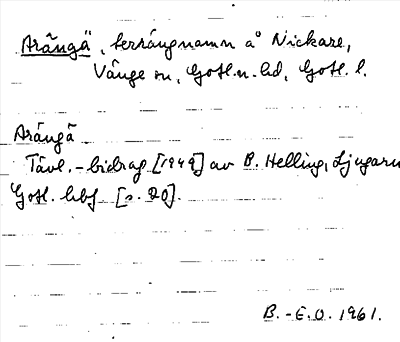 Arängä, terrängnamn å Nickare,
Vänge sn, Gotl. n. hd, Gotl. l.
Arängä
Tävl.-bidrag [1949] av B. Helling, Ljugarn
Gotl. hbf [s. 20].
B.-E.O. 1961.